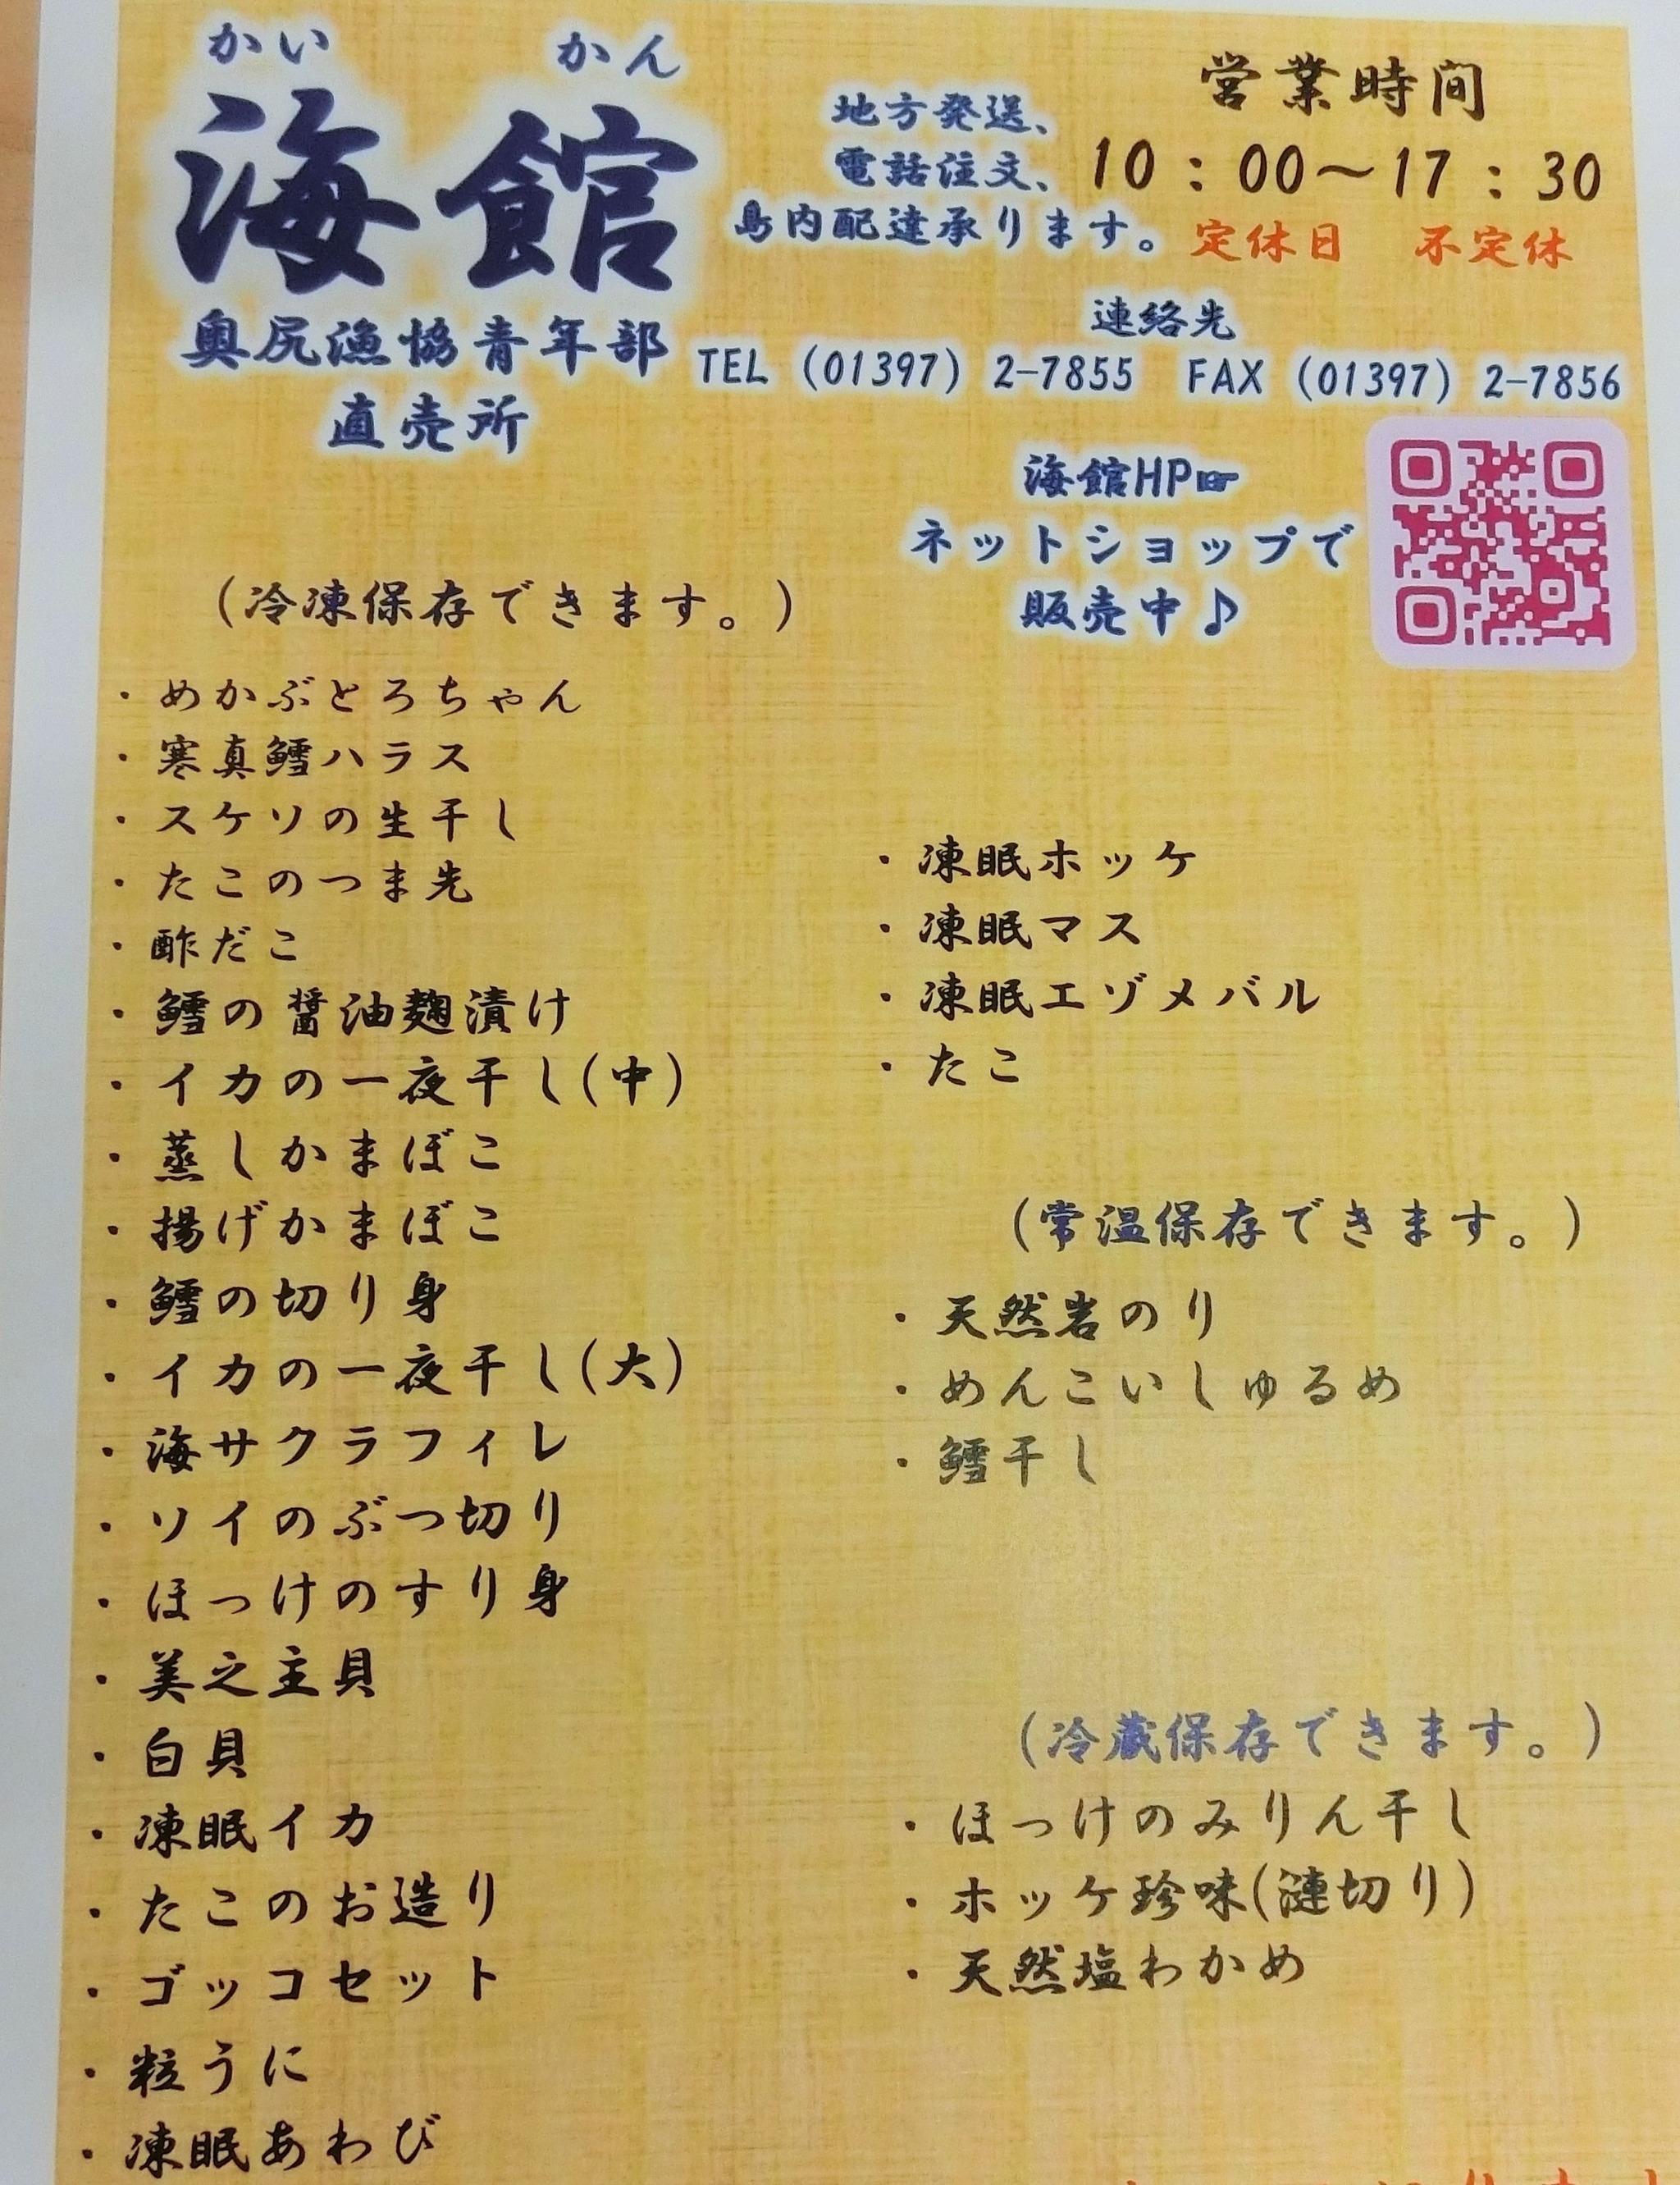 かい かん
海館
奥尻漁協青年部
直売所
地方発送、
電話注文、
島内配達承ります。
営業時間
10：00～17：30
定休日 不定休
連絡先
TEL (01397) 2-7855 FAX (01397) 2-7856
海館HP☞
ネットショップで
販売中♪
(冷凍保存できます。)
・めかぶとろちゃん
・寒真鱈ハラス
・スケソの生干し
・たこのつま先
・酢だこ
・鱈の醤油麹漬け
・イカの一夜干し(中)
・蒸しかまぼこ
・揚げかまぼこ
・鱈の切り身
・イカの一夜干し(大)
・海サクラフィレ
・ソイのぶつ切り
・ほっけのすり身
・美之主貝
・白貝
・凍眠イカ
・たこのお造り
・ゴッコセット
・粒うに
・凍眠あわび
・凍眠ホッケ
・凍眠マス
・凍眠エゾメバル
・たこ
(常温保存できます。)
・天然岩のり
・めんこいしゅるめ
・鱈干し
(冷蔵保存できます。)
・ほっけのみりん干し
・ホッケ珍味(漣切り)
・天然塩わかめ